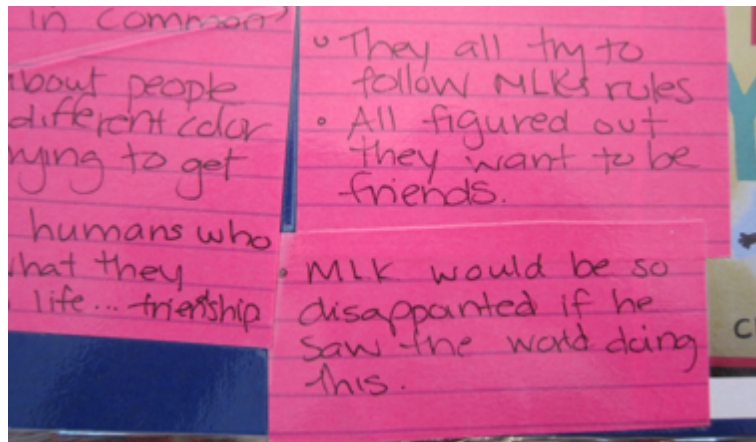 in common?
about people
different color
rying to get
humans who
hat they
life... friendship
• They all try to
follow MLKs rules
• All figured out
they want to be
friends.
• MLK would be so
disappointed if he
saw the world doing
this.